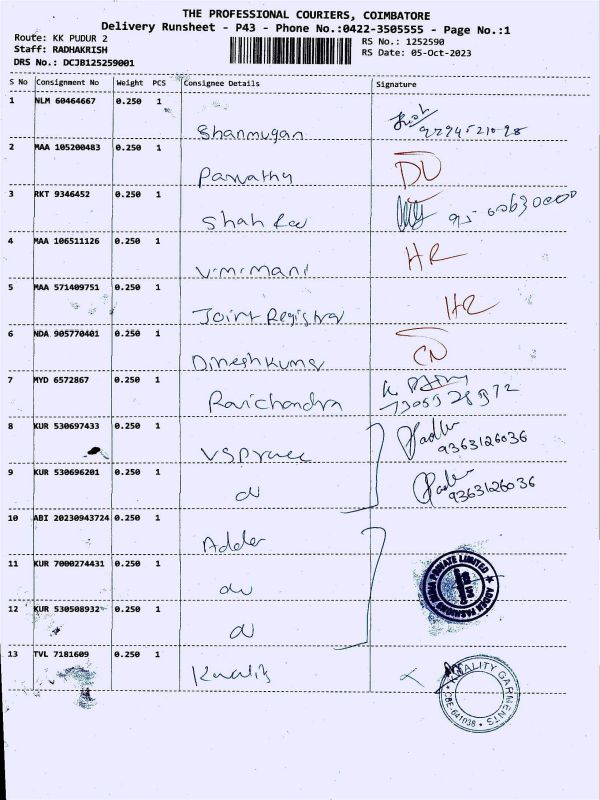 THE PROFESSIONAL COURIERS, COIMBATORE
Delivery Runsheet - P43 - Phone No.:0422-3505555 - Page No.:1
Route: KK PUDUR 2
RS No.: 1252590
Staff: RADHAKRISH
RS Date: 05-Oct-2023
DRS No.: DCJB125259001
S No Consignment No Weight PCS Consignee Details Signature
1 NLM 60464667 0.250 1
Shanmugan
2 MAA 105200483 0.250 1
Parvathy DU
3 RKT 9346452 0.250 1
Shah
4 MAA 106511126 0.250 1
V.M.Mani HR
5 MAA 571409751 0.250 1
Joint Registrar HR
6 NDA 905770401 0.250 1
Dineshkumar CN
7 MYD 6572867 0.250 1
Ravichandra
8 KUR 530697433 0.250 1
9363126036
9 KUR 530696201 0.250 1
9363126036
10 ABI 20230943724 0.250 1
11 KUR 7000274431 0.250 1
12 KUR 530508932 0.250 1
13 TVL 7181609 0.250 1
Kwality
KWALITY GARMENTS
CBE-641038